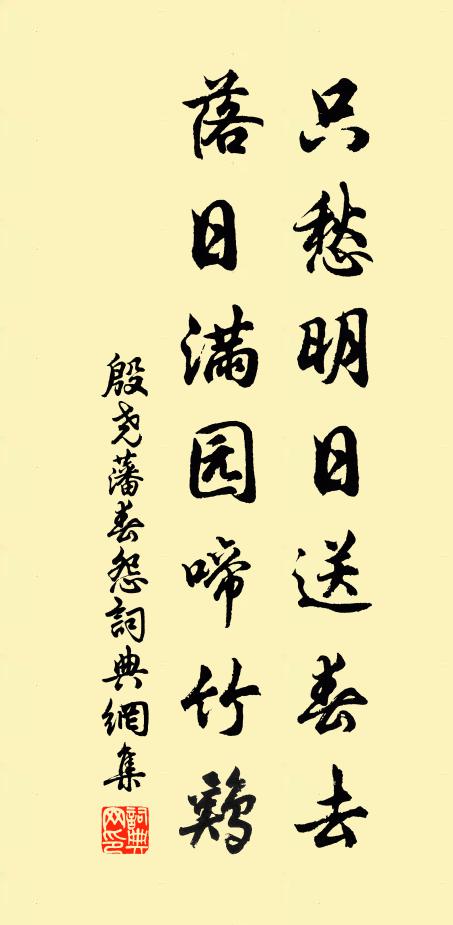 只愁明日送春去
落日满园啼竹鸡
殷尧藩春怨詞典網集
詞典网印